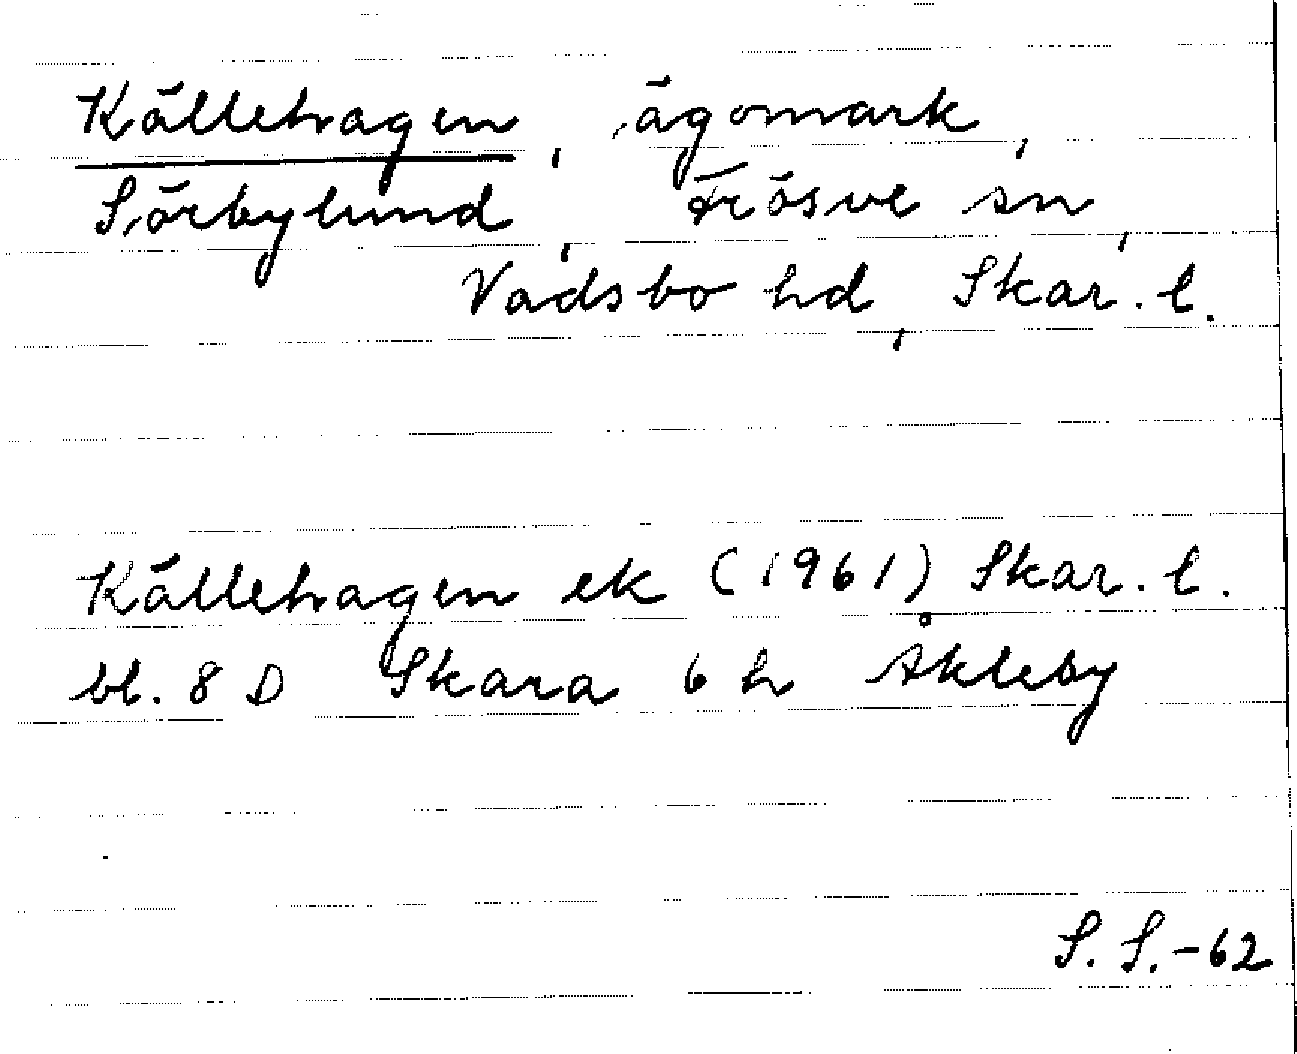 Källehagen, ägomark,
Sörbylund, Frösve sn,
Vadsbo hd, Skar. l.
Källehagen ek (1961) Skar. l.
bl. 8 D Skara 6 h Åkleby
S. S. -62